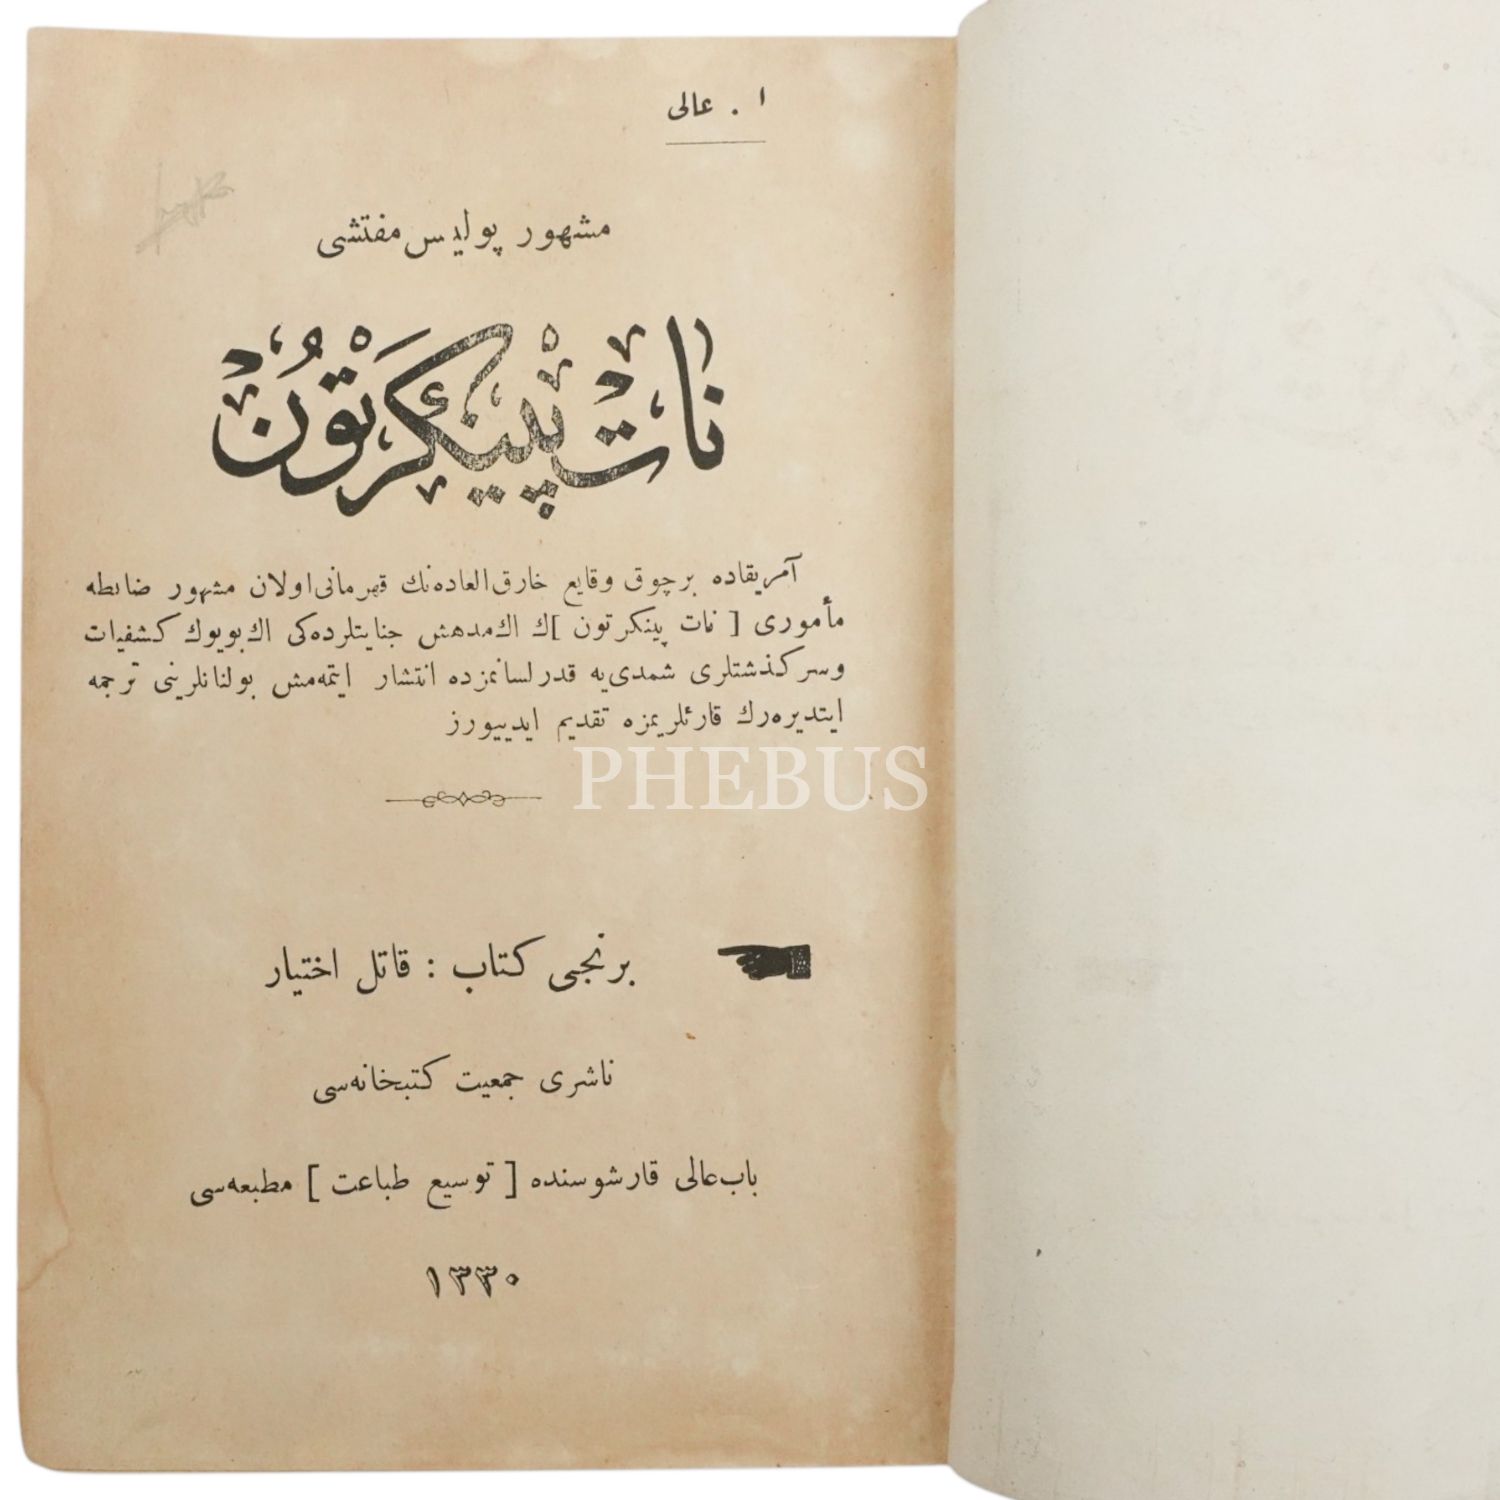 ا . عالی
مشهور پولیس مفتشی
نات پینكرتون
آمریقاده برچوق وقایع خارق‌العاده‌نك قهرمانی اولان مشهور ضابطه
مأموری [ نات پینكرتون ]ك اك مدهش جنایتلرده‌كی اك بویوك كشفیات
وسركذشتلری شمدی‌یه قدر لسانمزده انتشار ایتمه‌مش بولنانلرینی ترجمه
ایتدیره‌رك قارئلریمزه تقدیم ایدییورز
PHEBUS
برنجی كتاب : قاتل اختیار
ناشری جمعیت كتبخانه‌سی
باب‌عالی قارشوسنده [ توسیع طباعت ] مطبعه‌سی
١٣٣٠